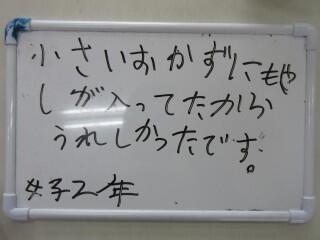 小さいおかずにもや
しが入ってたから
うれしかったです。
女子2年